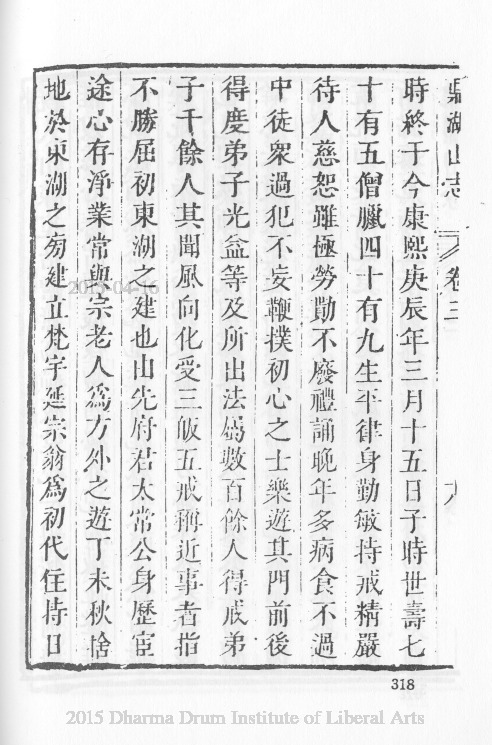 鼎湖山志 卷三 八
時終于今康熙庚辰年三月十五日子時世壽七
十有五僧臘四十有九生平律身勤敏持戒精嚴
待人慈恕雖極勞勩不廢禮誦晚年多病食不過
中徒衆過犯不妄鞭撲初心之士樂遊其門前後
得度弟子光益等及所出法屬數百餘人得戒弟
子千餘人其聞風向化受三皈五戒稱近事者指
不勝屈初東湖之建也山先府君太常公身歷宦
途心存淨業常與宗老人爲方外之遊丁未秋捨
地於東湖之菊建立梵宇延宗翁爲初代住持日
318
2015-04-16
2015 Dharma Drum Institute of Liberal Arts